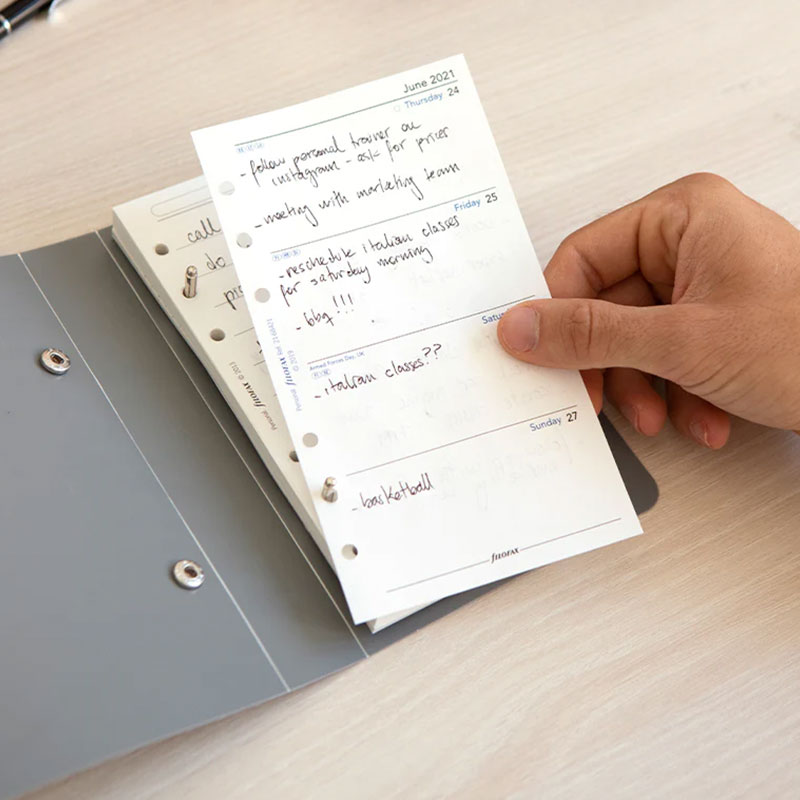 June 2021
Thursday 24
- follow personal trainer on
instagram - ask for prices
- meeting with marketing team
Friday 25
- reschedule italian classes
for saturday morning
- bbq!!!
Armed Forces Day, UK
- italian classes??
Sunday 27
- basketball
FILOFAX
Personal FILOFAX © 2019
call
do
Personal FILOFAX © 2013